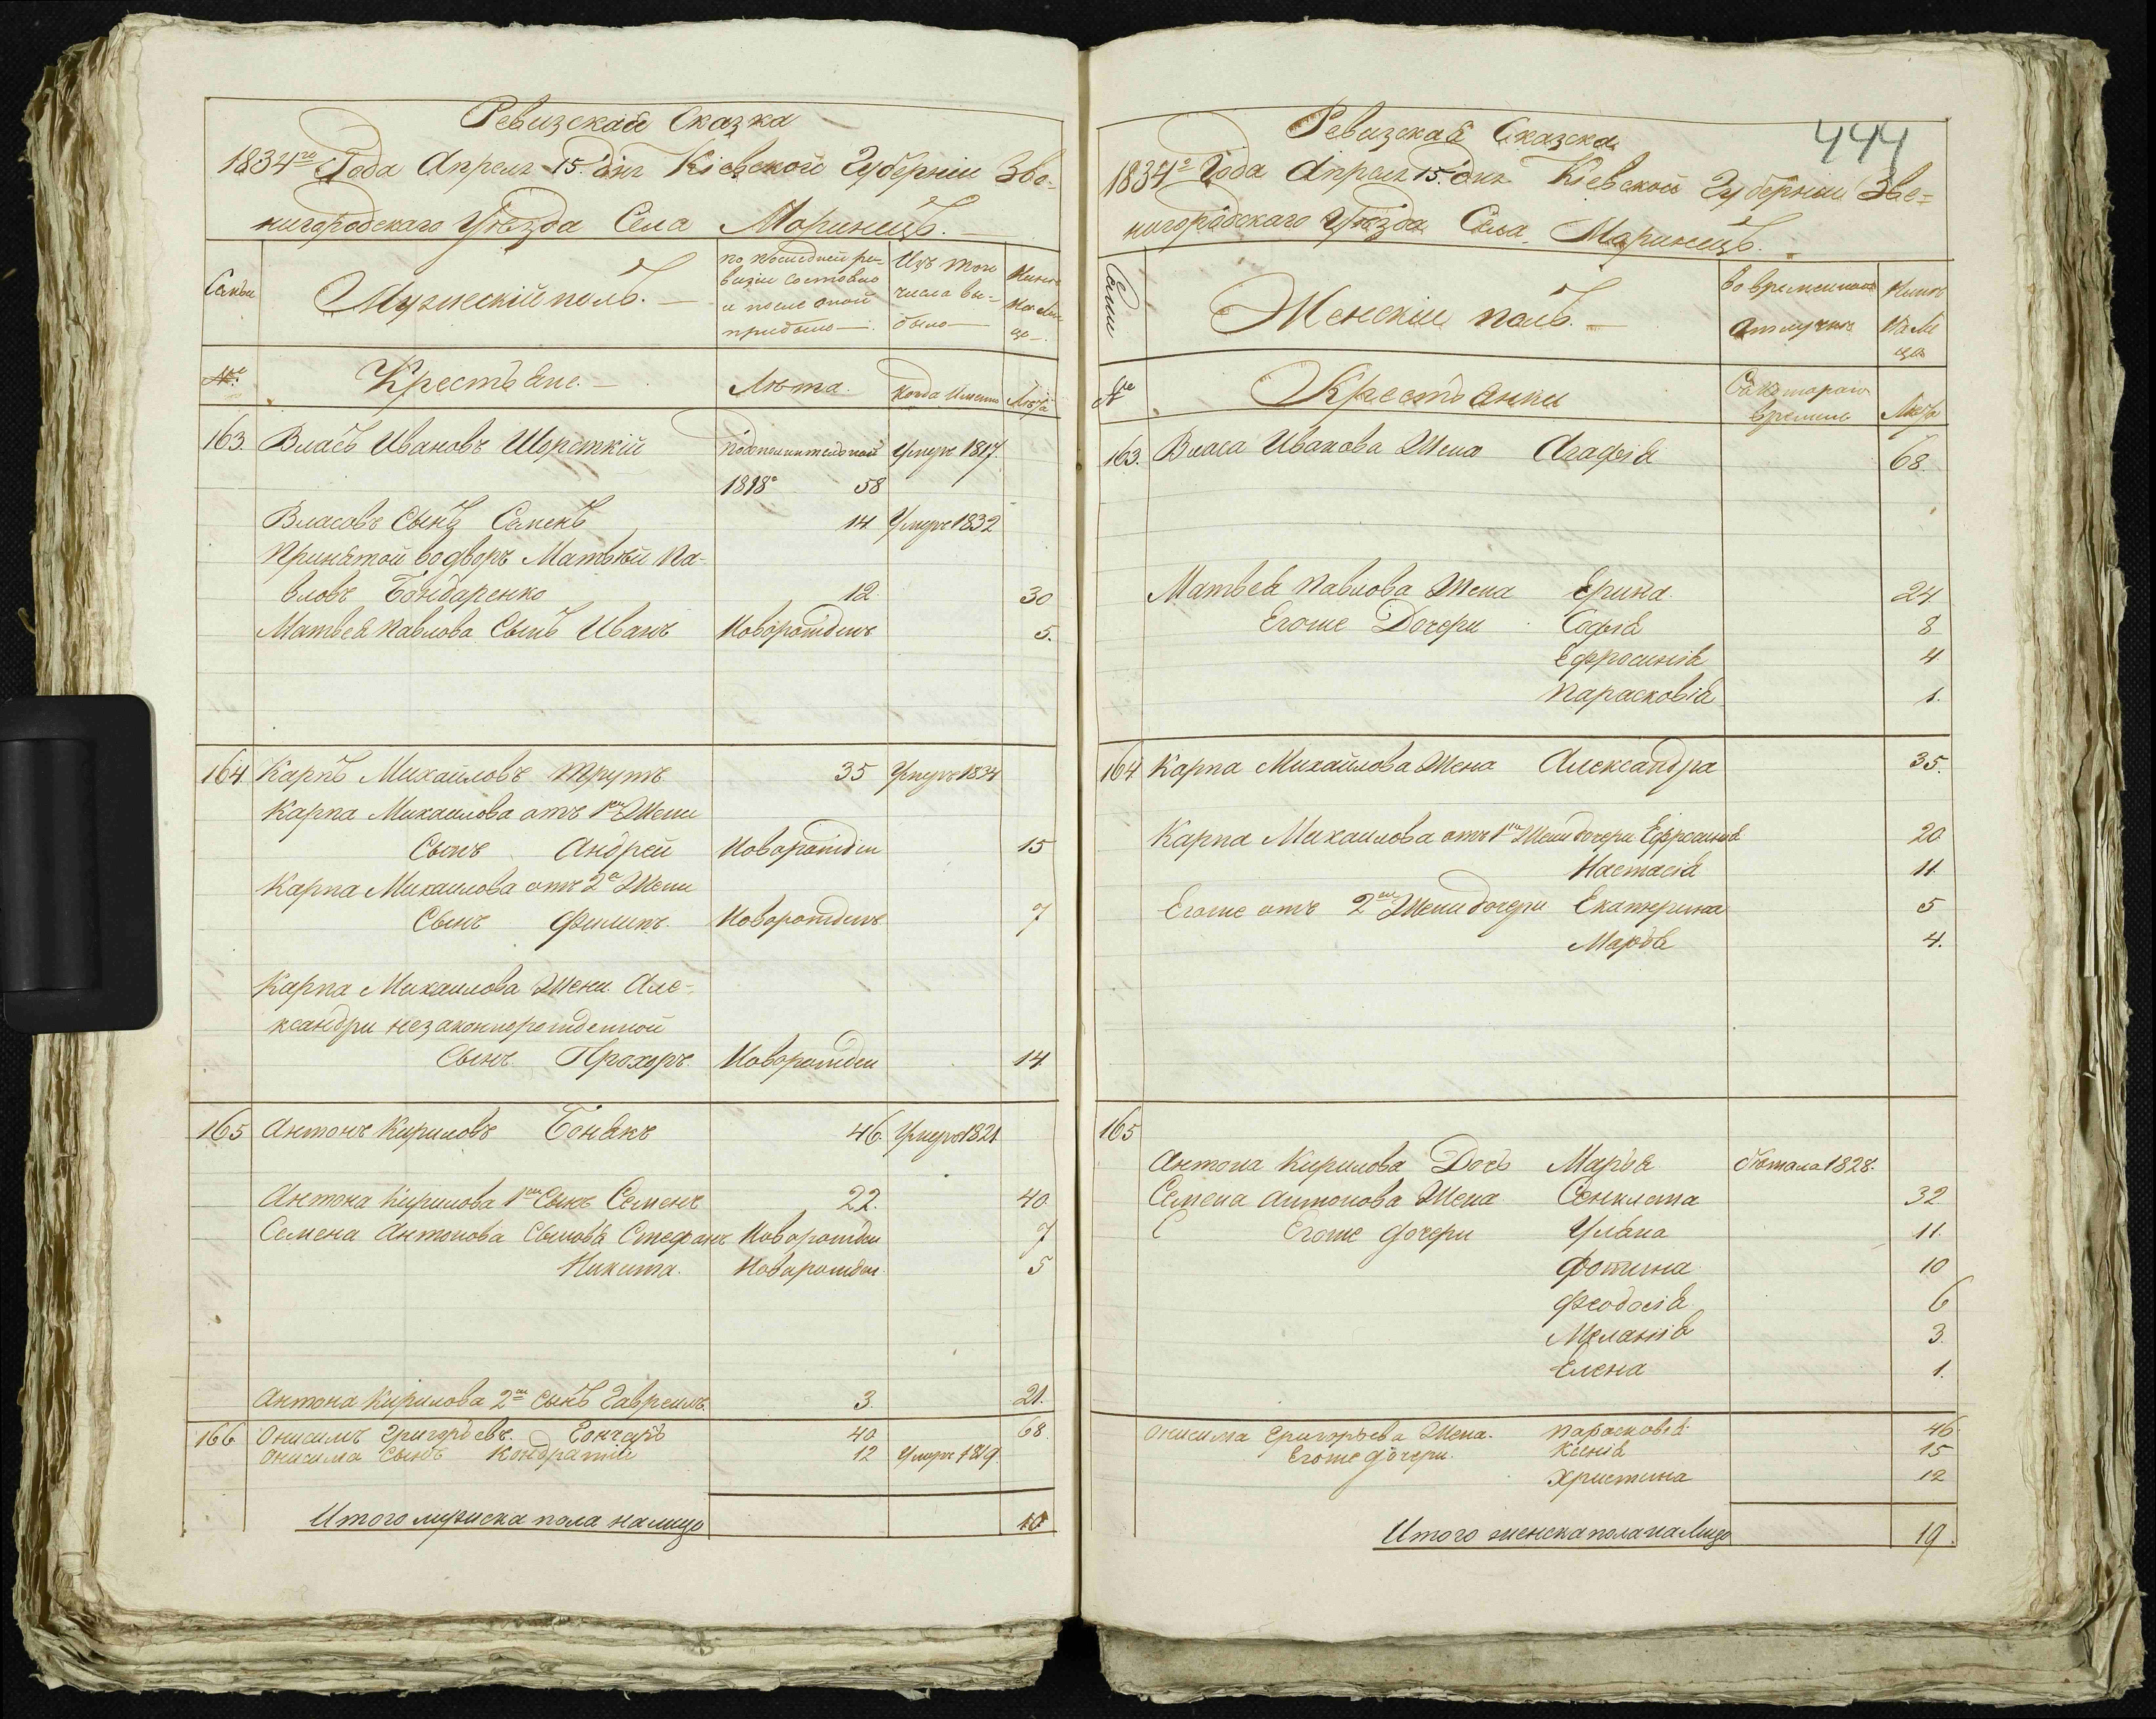 Ревизская Сказка
1834го Года Апреля 15. дня Кіевской Губерніи Зве=
нигородскаго Уезда Села Моринецъ.
Семьи
Мужескій полъ.
по последней ре-
визіи состояло
и после оной
прибыло
Изъ того
числа вы-
было
Ныне
На ли-
це
№
Крестьяне.
Лѣта.
когда именно
Лѣта
163. Власъ Ивановъ Шорсткій
Умеръ 1817.
1818го 58
Власовъ Сынъ Семенъ 14 Умеръ 1832
Принятой водворъ Матвѣй Па-
вловъ Бондаренко 12 30
Матвея Павлова Сынъ Иванъ Новорожденъ 5.
164 Карпъ Михайловъ Трутъ 35 Умеръ 1834
Карпа Михаилова отъ 1ой Жени
Сынъ Андрей Новорожден 15
Карпа Михаилова отъ 2й Жени
Сынъ Филипъ. Новорожденъ 7
Карпа Михаилова Жени Але-
ксандри незаконнорожденной
Сынъ Прохоръ. Новорожден 14
165 Антонъ Кириловъ Бонякъ 46. Умеръ 1821
Антона Кирилова 1й Сынъ Семенъ 22. 40
Семена Антонова Сыновья Стефанъ Новорожден 7
Никита. Новорожден 5
Антона Кирилова 2й Сынъ Гавреилъ 3. 21.
166 Онисимъ Григорьевъ. Гончаръ 40 68
Онисима Сынъ Кондратий 12 Умеръ 1819.
Итого мужска пола налицо 10
444
Ревизская Сказска
1834го Года Апреля 15. дня Кіевской Губерніи Зве=
нигородскаго Уезда Села Моринецъ.
Семьи
Женскій полъ.
во временной
отлучке
Ныне
На Ли
цо
№
Крестьянки
Съ котораго
времени
Лета
163. Власа Иванова Жена Агафія 68
Матвея Павлова Жена Ерина. 24
Егоже Дочери Софія 8
Ефросинія 4
Парасковія 1.
164 Карпа Михайлова Жена Александра 35.
Карпа Михаилова отъ 1й Жени дочери Ефросинія 20
Настасія 11.
Егоже отъ 2й Жени дочери Екатерина 5
Марья 4.
165
Антона Кирилова Дочь Марья бежала 1828.
Семена Антонова Жена Сенклета 32
Егоже дочери Уляна 11.
Фотина 10
Феодосія 6
Меланія 3.
Елена 1.
Онисима Григорьева Жена. Парасковія 46
Егоже дочери. Ксенія 15
Христина 12
Итого женска пола на Лицо 19.